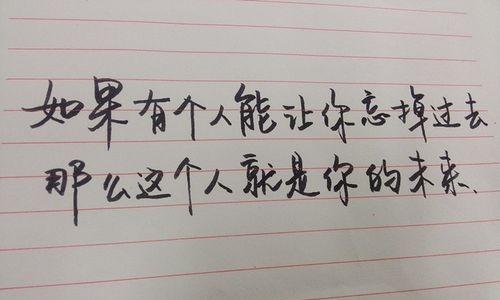 如果有个人能让你忘掉过去
那么这个人就是你的未来、